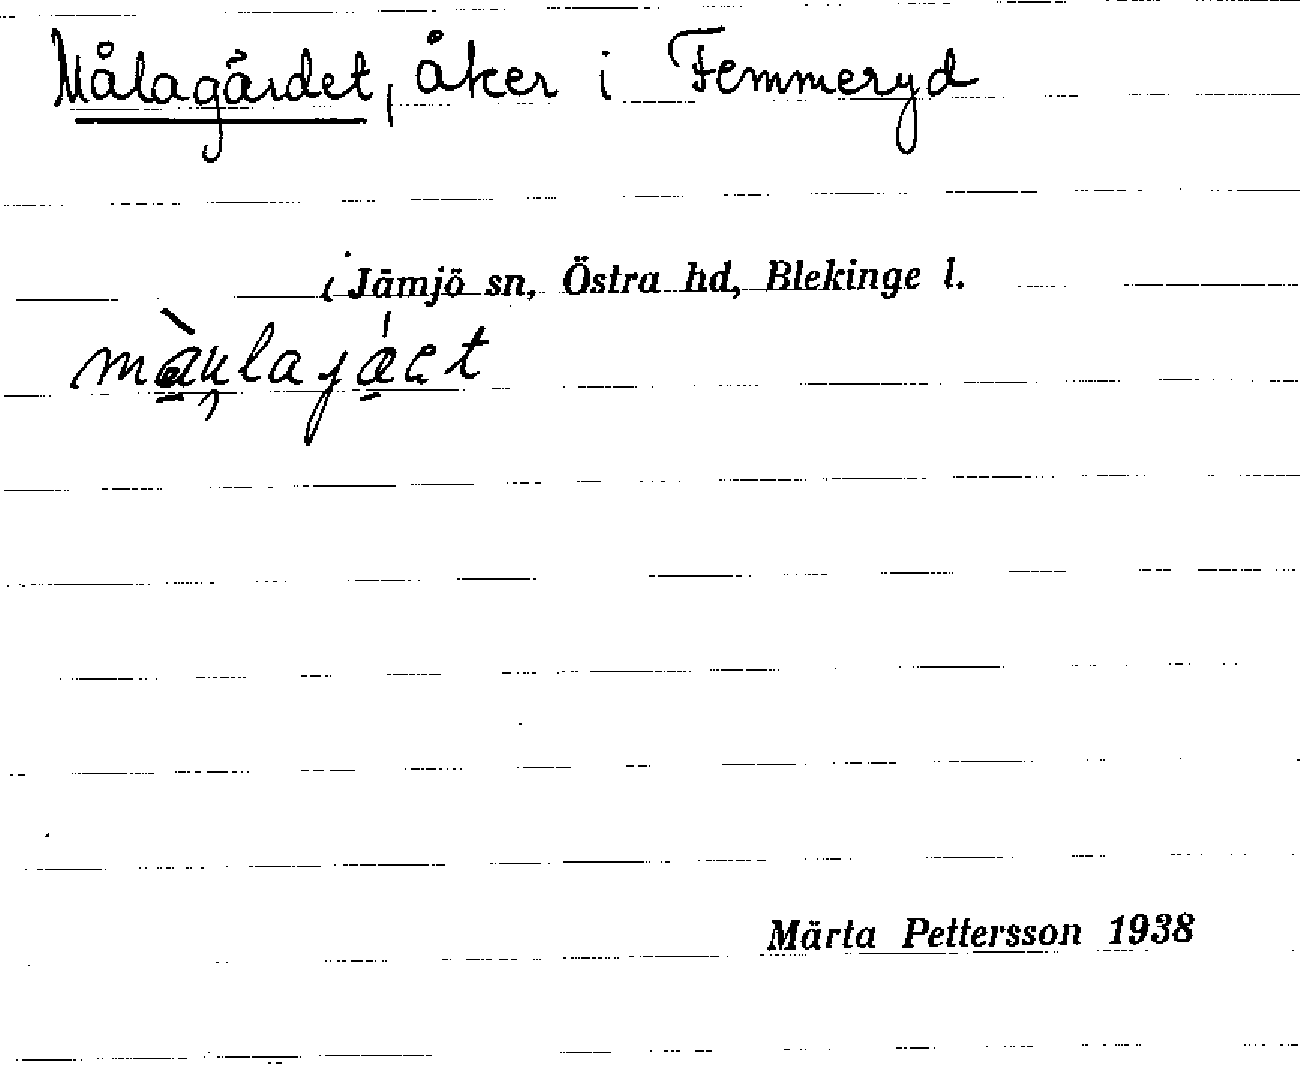 Målagärdet, åker i Femmeryd
i Jämjö sn, Östra hd, Blekinge l.
Märta Pettersson 1938